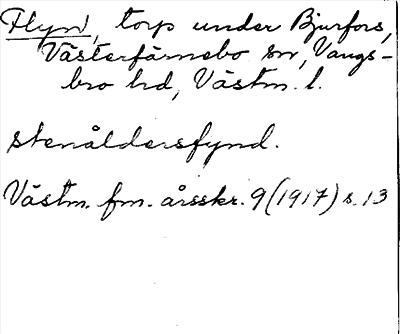 Flyn, torp under Bjurfors,
Västerfärnebo sn, Vangs-
bro hd, Västm. l.
stenåldersfynd.
Västm. fm. årsskr. 9 (1917) s. 13